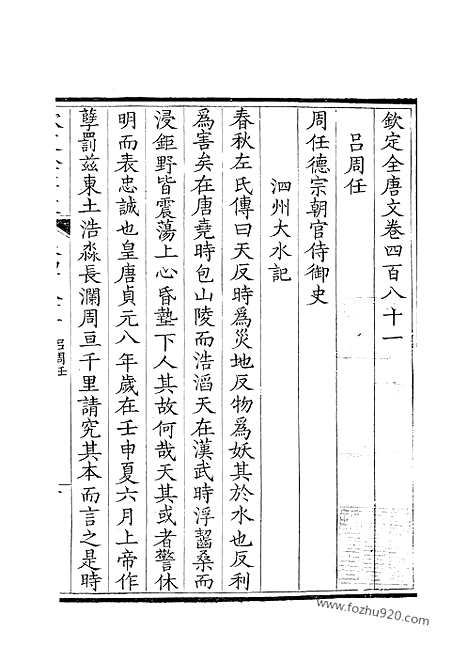 欽定全唐文卷四百八十一
呂周任
周任德宗朝官侍御史
泗州大水記
春秋左氏傳曰天反時爲災地反物爲妖其於水也反利
爲害矣在唐堯時包山陵而浩滔天在漢武時浮齧桑而
浸鉅野皆震蕩上心昏墊下人其故何哉天其或者警休
明而表忠誠也皇唐貞元八年歲在壬申夏六月上帝作
孽罰茲東土浩淼長瀾周亘千里請究其本而言之是時
呂周任
一
www.fozhu920.com